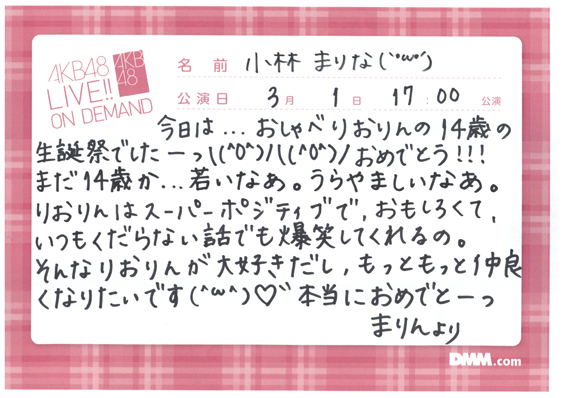 AKB48
LIVE!!
ON DEMAND
AKB
48
名前 小林 まりな(`・ω・´)
公演日 3月 1日 17:00 公演
今日は...おしゃべりおりんの14歳の
生誕祭でしたーっ\(^O^)/\(^O^)/おめでとう!!!
まだ14歳か...若いなあ。うらやましいなあ。
りおりんはスーパーポジティブで,おもしろくて,
いつもくだらない話でも爆笑してくれるの。
そんなりおりんが大好きだし,もっともっと仲良
くなりたいです(^ω^)♡゛本当におめでとーっ
まりんより
DMM.com